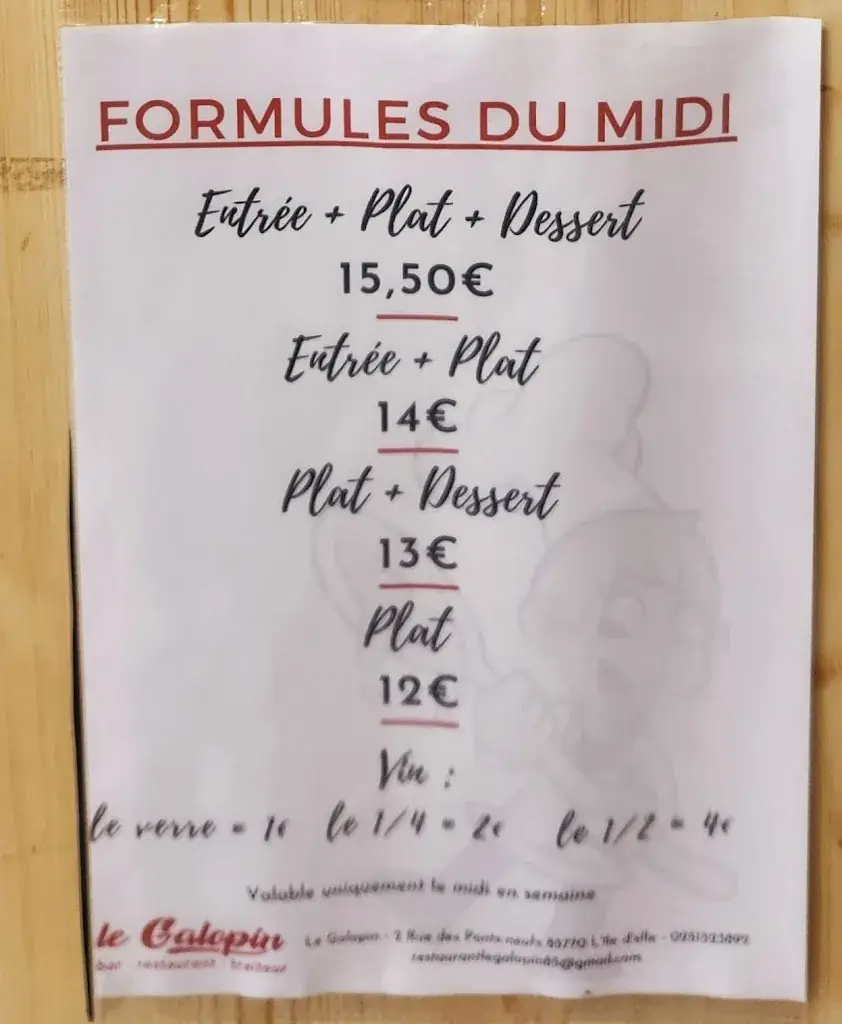 FORMULES DU MIDI
Entrée + Plat + Dessert
15,50€
Entrée + Plat
14€
Plat + Dessert
13€
Plat
12€
Vin :
le verre = 1€ le 1/4 = 2€ le 1/2 = 4€
Valable uniquement le midi en semaine
le Galopin
bar - restaurant - traiteur
Le Galopin - 2 Rue des Ponts neufs L'île d'elle
restaurantlegalopin85@gmail.com